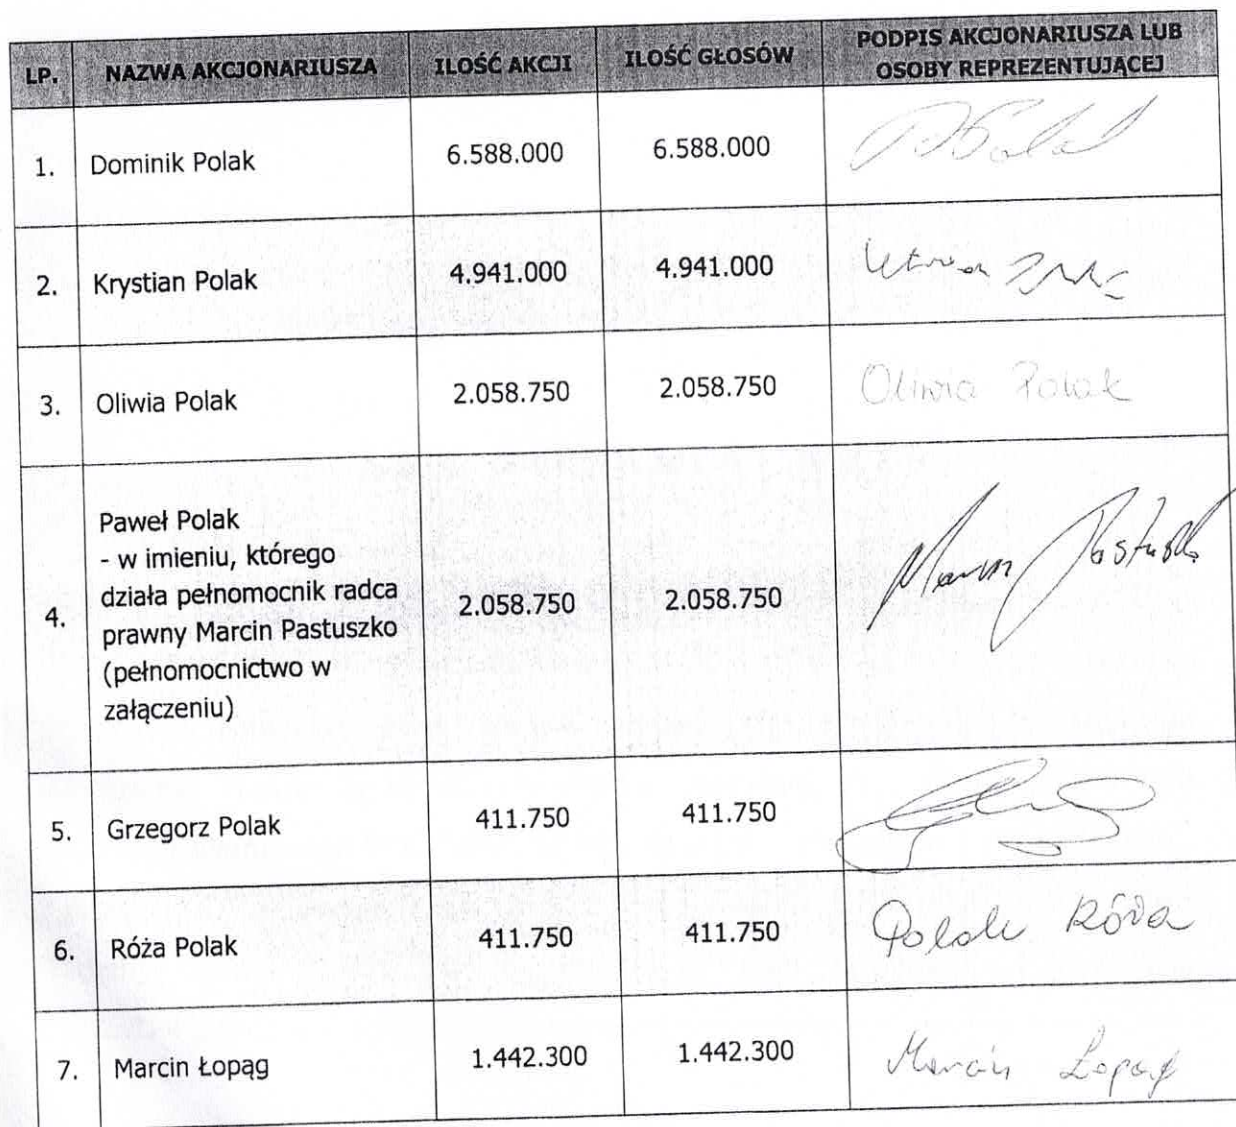 LP. NAZWA AKCJONARIUSZA ILOŚĆ AKCJI ILOŚĆ GŁOSÓW PODPIS AKCJONARIUSZA LUB
OSOBY REPREZENTUJĄCEJ
1. Dominik Polak 6.588.000 6.588.000
2. Krystian Polak 4.941.000 4.941.000
3. Oliwia Polak 2.058.750 2.058.750 Oliwia Polak
Paweł Polak
- w imieniu, którego
działa pełnomocnik radca
4. prawny Marcin Pastuszko 2.058.750 2.058.750 Marcin Pastuszko
(pełnomocnictwo w
załączeniu)
5. Grzegorz Polak 411.750 411.750
6. Róża Polak 411.750 411.750 Polak Róża
7. Marcin Łopąg 1.442.300 1.442.300 Marcin Łopąg